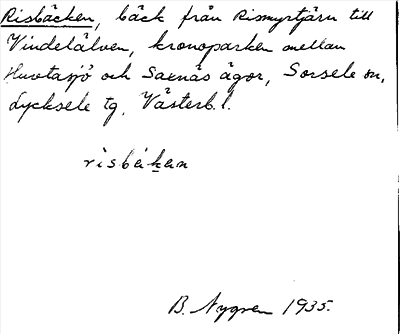 Risbäcken, bäck från Rismyrtjärn till
Vindelälven, kronoparken mellan
Huvtasjö och Saxnäs ägor, Sorsele sn,
Lycksele tg, Västerb. l.
risbäkan
B. Nygren 1935.